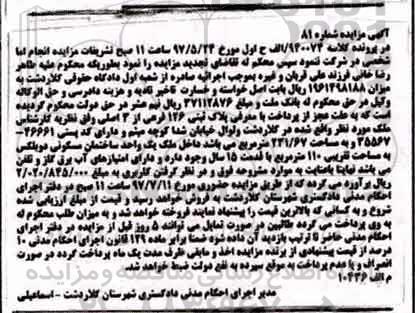 آگهی مزایده شماره ۸۱
در پرونده کلاسه ۹۴۰۰۷۴/الف ح اول مورخ ۹۷/۵/۲۴ ساعت ۱۱ صبح تشریفات مزایده انجام اما
شخصی در شرکت ننمود سپس محکم له تقاضای تجدید مزایده را نمود بطوریکه محکوم علیه طاهر
رضا خانی فرزند علی قربان و غیره بموجب اجرائیه صادره از شعبه اول دادگاه حقوقی کلاردشت به
میزان ۱۹۶۱۴۹۸۱۸۸ ریال بابت اصل خواسته و خسارت تاخیر تادیه و هزینه دادرسی و حق الوکاله
وکیل در حق محکوم له بانک ملت و مبلغ ۳۷۱۱۲۸۷۶ ریال نیم عشر در حق دولت محکوم گردیده
است که به علت عجز از پرداخت با معرفی پلاک ثبتی ۱۲۶ فرعی از ۳ اصلی وفق نظریه کارشناس
ملک مورد نظر واقع شده در کلاردشت ولوال خیابان شدا کوچه میثم و دارای کد پستی ۴۶۶۶۱-
۳۵۵۶۷ و به مساحت ۲۳۱/۶۷ مترمربع می باشد داخل ملک یک واحد ساختمان مسکونی دوبلکس
به مساحت تقریبی ۱۱۰ مترمربع با قدمت ۱۵ سال وجود دارد و دارای امتیازهای آب برق گاز و تلفن
می باشد نهایتا باعنایت به موارد مشروحه فوق و در نظر گرفتن کاربری به مبلغ ۲/۰۲۰/۸۴۵/۰۰۰
ریال برآورد می گردد که از طریق مزایده حضوری مورخ ۹۷/۷/۱۱ ساعت ۱۱ صبح در دفتر اجرای
احکام مدنی دادگستری شهرستان کلاردشت به فروش خواهد رسید و قیمت از مبلغ ارزیابی شده
شروع و به کسانی که بالاترین قیمت را پیشنهاد نمایند فروخته خواهد شد و به میزان طلب محکوم له
به وی پرداخت می گردد طالبین در صورت تمایل می توانند ۵ روز قبل از مزایده در دفتر اجرای
احکام مدنی حاضر تا ترتیب بازدید آن داده شود ضمنا برابر ماده ۱۲۹ قانون اجرای احکام مدنی ۱۰
درصد از قیمت پیشنهادی از برنده مزایده اخذ و مابقی ظرف مدت یک ماه پرداخت گردد در صورت
انصراف و یا عدم پرداخت به موقع سپرده به نفع دولت ضبط خواهد شد.
م الف ۱۰۴۳۶
مدیر اجرای احکام مدنی دادگستری شهرستان کلاردشت - اسماعیلی